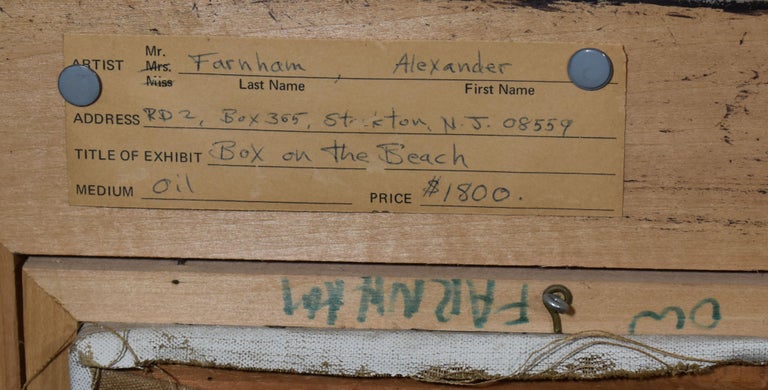 Mr.
ARTIST Mrs. Farnham, Alexander
Miss Last Name First Name
ADDRESS RD 2, Box 365, Stockton, N.J. 08559
TITLE OF EXHIBIT Box on the Beach
MEDIUM Oil PRICE $1800.
FARNHAM